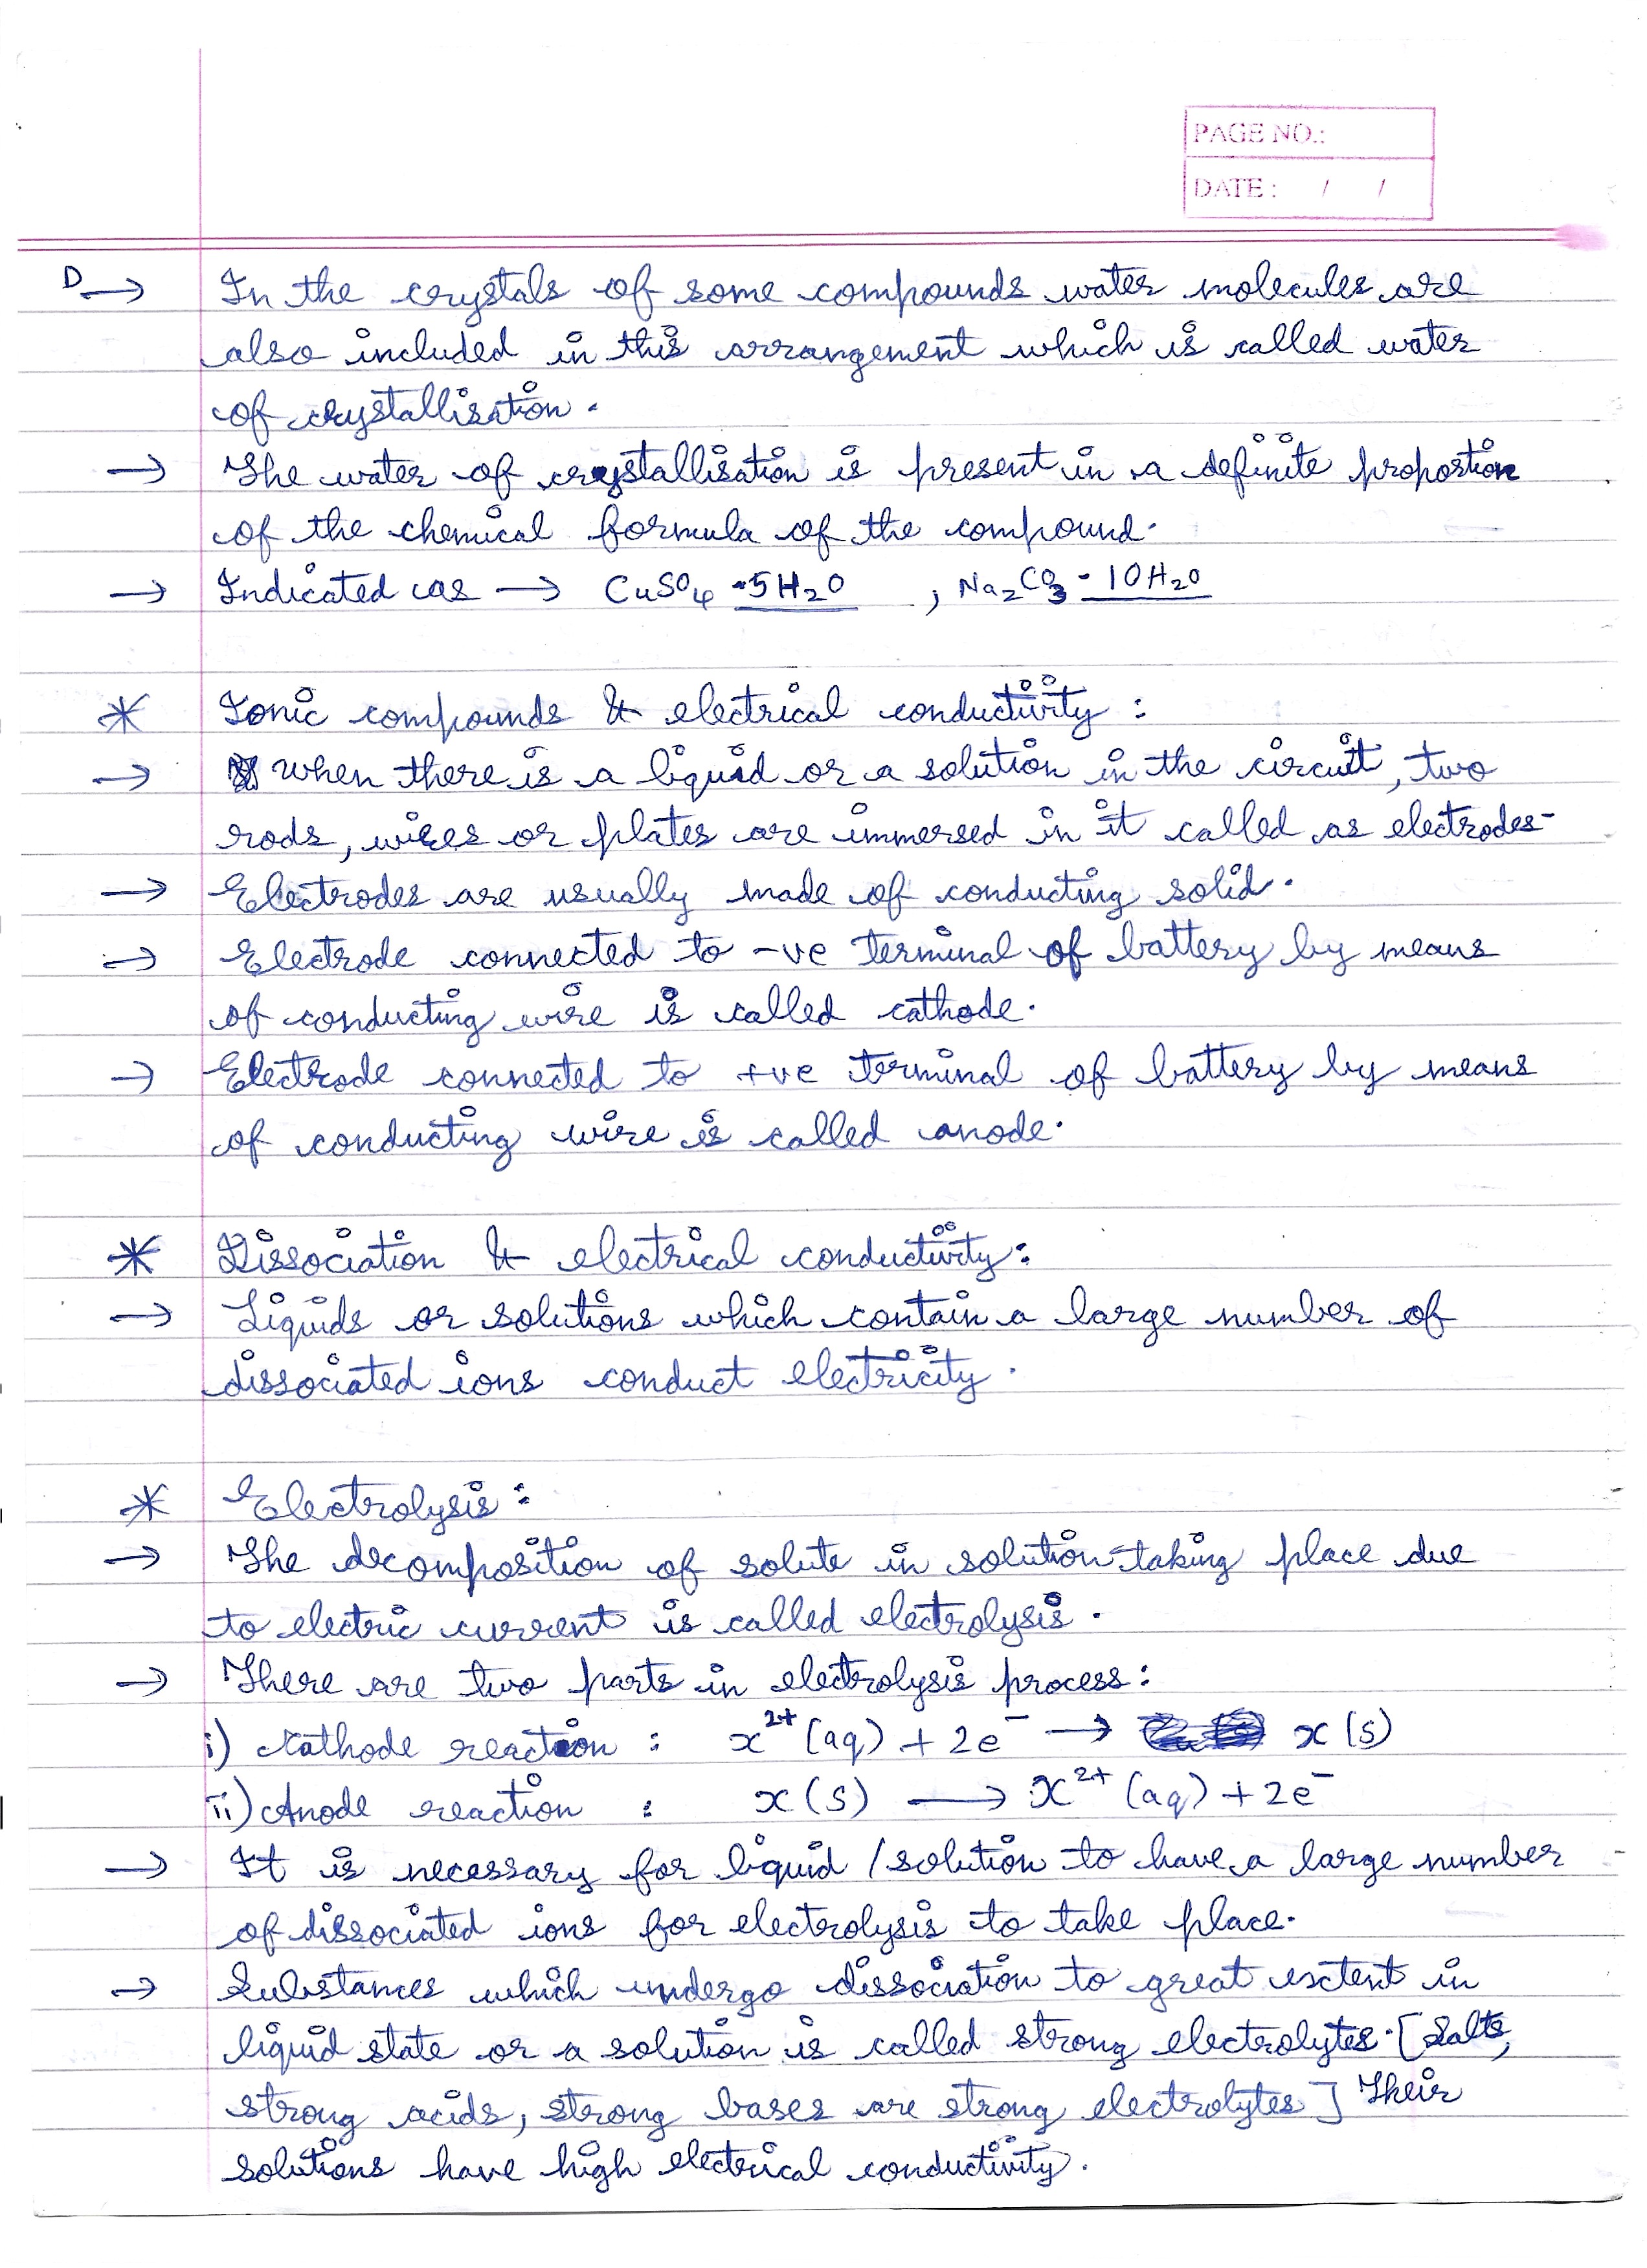 PAGE NO.:
DATE : / /
D→ In the crystals of some compounds water molecules are
also included in this arrangement which is called water
of crystallisation.
→ The water of crystallisation is present in a definite proportion
of the chemical formula of the compound.
→ Indicated as → CuSO₄·5H₂O , Na₂CO₃·10H₂O
* Ionic compounds & electrical conductivity :
→ When there is a liquid or a solution in the circuit, two
rods, wires or plates are immersed in it called as electrodes-
→ Electrodes are usually made of conducting solid.
→ Electrode connected to -ve terminal of battery by means
of conducting wire is called cathode.
→ Electrode connected to +ve terminal of battery by means
of conducting wire is called anode.
* Dissociation & electrical conductivity:
→ Liquids or solutions which contain a large number of
dissociated ions conduct electricity.
* Electrolysis :
→ The decomposition of solute in solution taking place due
to electric current is called electrolysis.
→ There are two parts in electrolysis process:
i) Cathode reaction : x²⁺(aq) + 2e⁻ → x(s)
ii) Anode reaction : x(s) → x²⁺(aq) + 2e⁻
→ It is necessary for liquid /solution to have a large number
of dissociated ions for electrolysis to take place.
→ Substances which undergo dissociation to great extent in
liquid state or a solution is called strong electrolytes. [Salts,
strong acids, strong bases are strong electrolytes] Their
solutions have high electrical conductivity.